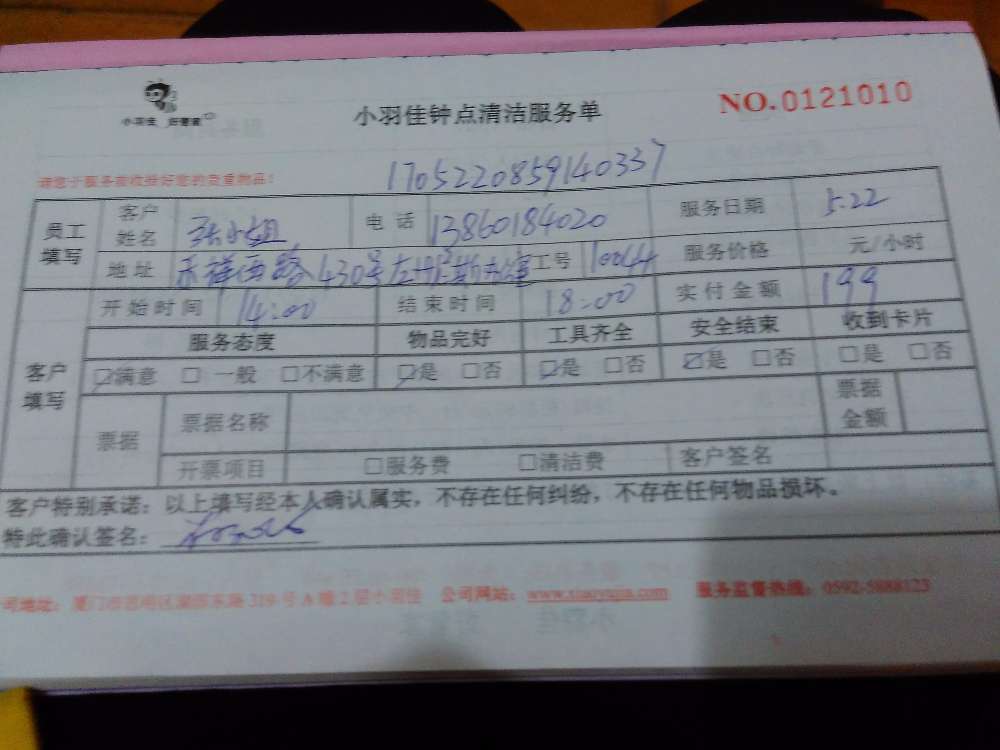 小羽佳 好管家
小羽佳钟点清洁服务单
NO.0121010
请您于服务前收拾好您的贵重物品！
1705220859140337
员工填写 客户姓名 张小姐 电话 13860184020 服务日期 5.22
地址 禾祥西路430号 工号 10044 服务价格 元/小时
开始时间 14:00 结束时间 18:00 实付金额 199
客户填写 服务态度 物品完好 工具齐全 安全结束 收到卡片
☑满意 □一般 □不满意 ☑是 □否 ☑是 □否 ☑是 □否 □是 □否
票据 票据名称 票据金额
开票项目 □服务费 □清洁费 客户签名
客户特别承诺：以上填写经本人确认属实，不存在任何纠纷，不存在任何物品损坏。
特此确认签名：
司地址：厦门市思明区湖滨东路319号A幢2层小羽佳 公司网站：www.xiaoyujia.com 服务监督热线：0592-5888123